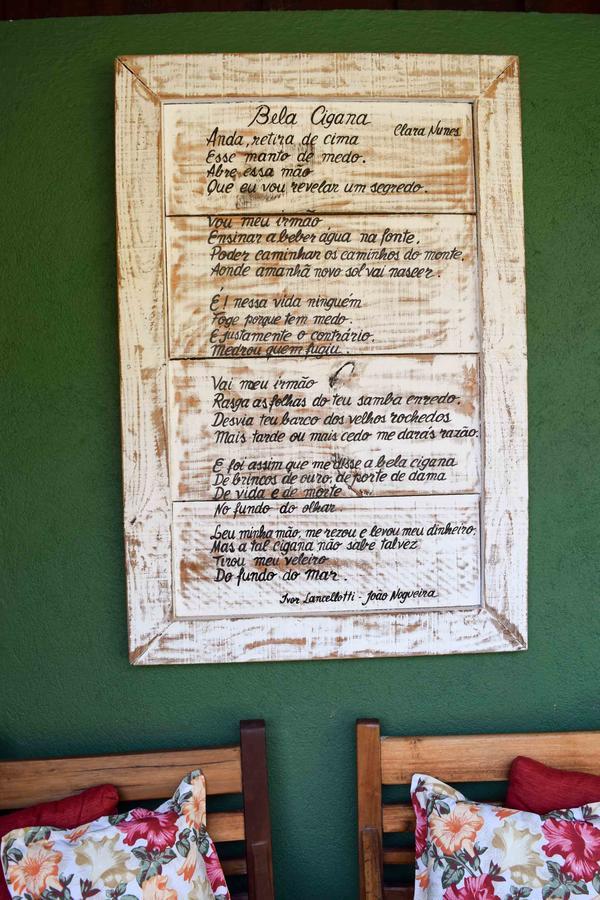 Bela Cigana
Clara Nunes
Anda, retira de cima
Esse manto de medo.
Abre essa mão
Que eu vou revelar um segredo.
Vou meu irmão
Ensinar a beber água na fonte.
Poder caminhar os caminhos do monte.
Aonde amanhã novo sol vai nascer.
É! nessa vida ninguém
Foge porque tem medo.
É justamente o contrário.
Medrou quem fugiu.
Vai meu irmão
Rasga as folhas do teu samba enredo.
Desvia teu barco dos velhos rochedos
Mais tarde ou mais cedo me darás razão.
E foi assim que me disse a bela cigana
De brincos de ouro, de porte de dama
De vida e de morte
No fundo do olhar.
Leu minha mão, me rezou e levou meu dinheiro.
Mas a tal cigana não sabe talvez
Tirou meu veleiro
Do fundo do mar.
Ivor Lancellotti - João Nogueira